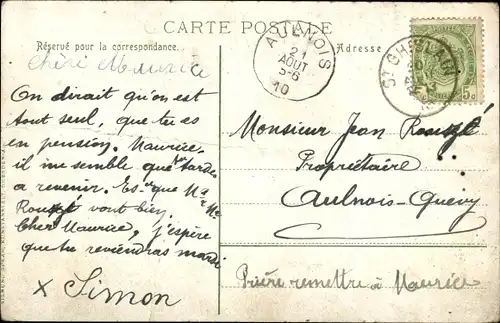 CARTE POSTALE
Réservé pour la correspondance.
Adresse
AULNOIS
21
AOUT
5-6
10
ST GHISLAIN
5c
Chéri Maurice
On dirait qu'on est
tout seul, que tu es
en pension. Maurice,
il me semble que tu tardes
a revenir. Es-ce que Mr
et Me
Rouzé vont bien,
Cher Maurice, j'espère
que tu reviendras mardi
x Simon
Monsieur Jean Rouzé
Propriétaire
Aulnois-Quévy
Prière remettre à Maurice